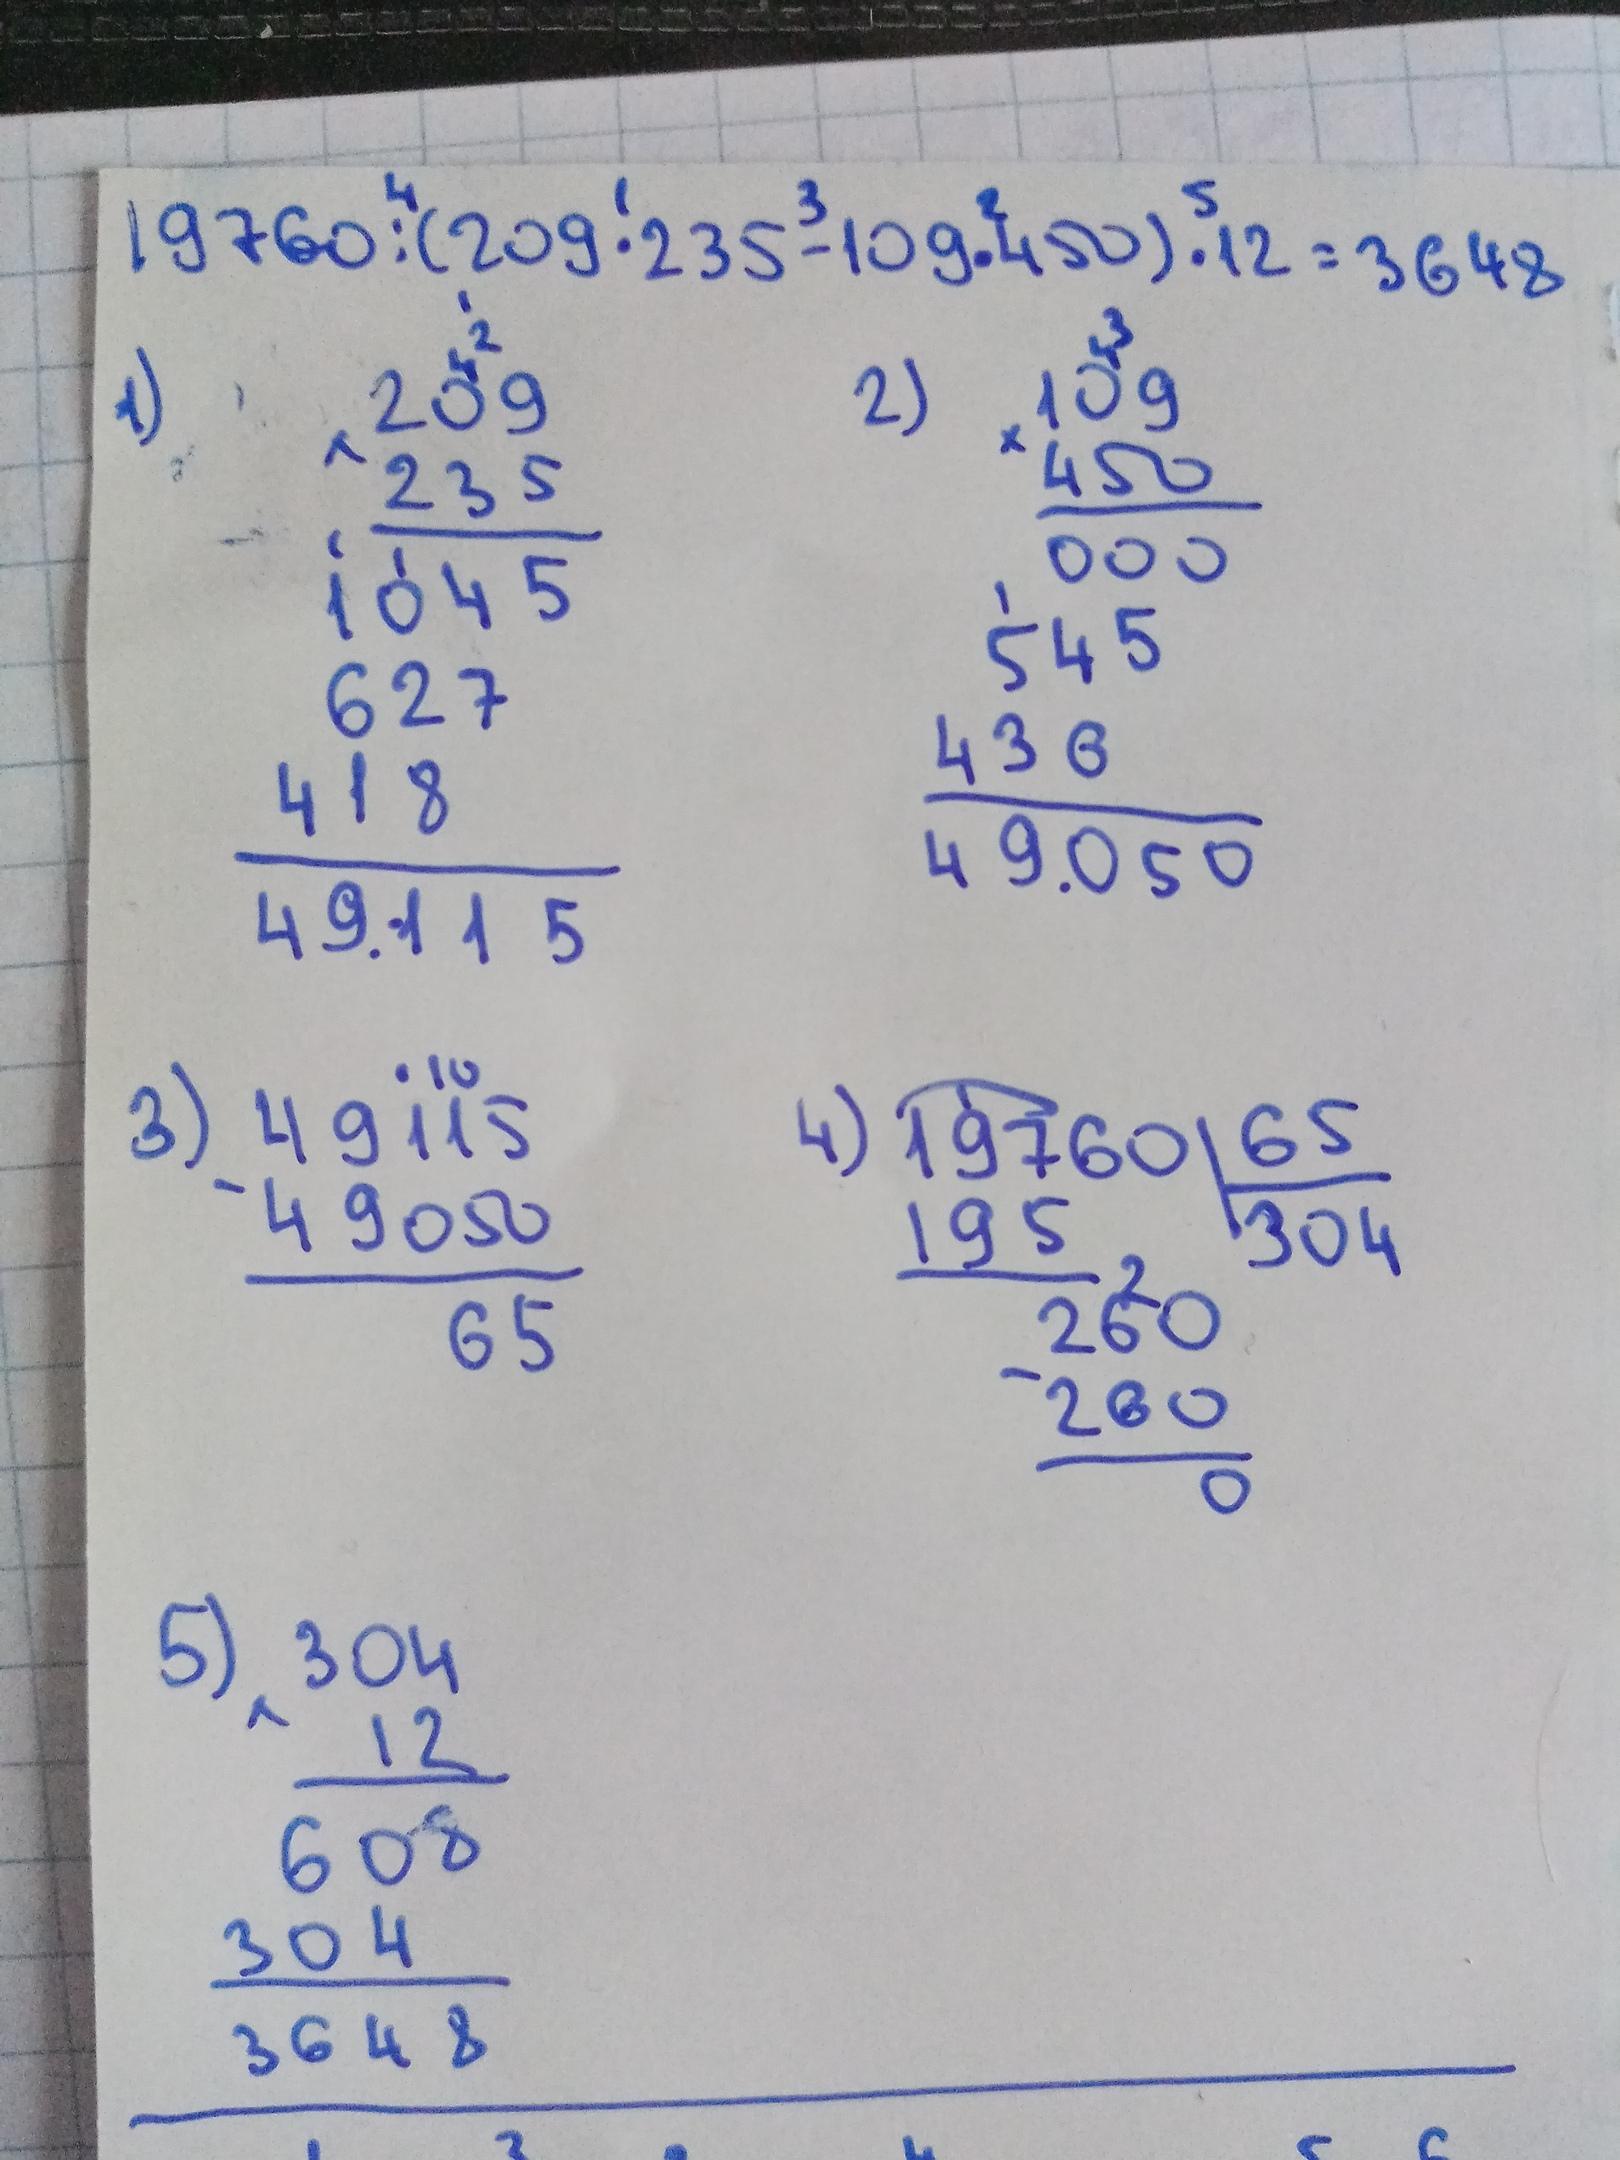 19760:(209·235-109·450)·12=3648
4 1 3 2 5
1)
1
2
4
209
× 235
1 1
1045
627
418
49.115
2)
3
4
109
× 450
000
1
545
436
49.050
3)
· 10
49115
- 49050
65
4) 19760 65
195 304
2
260
- 260
0
5) 304
× 12
608
304
3648